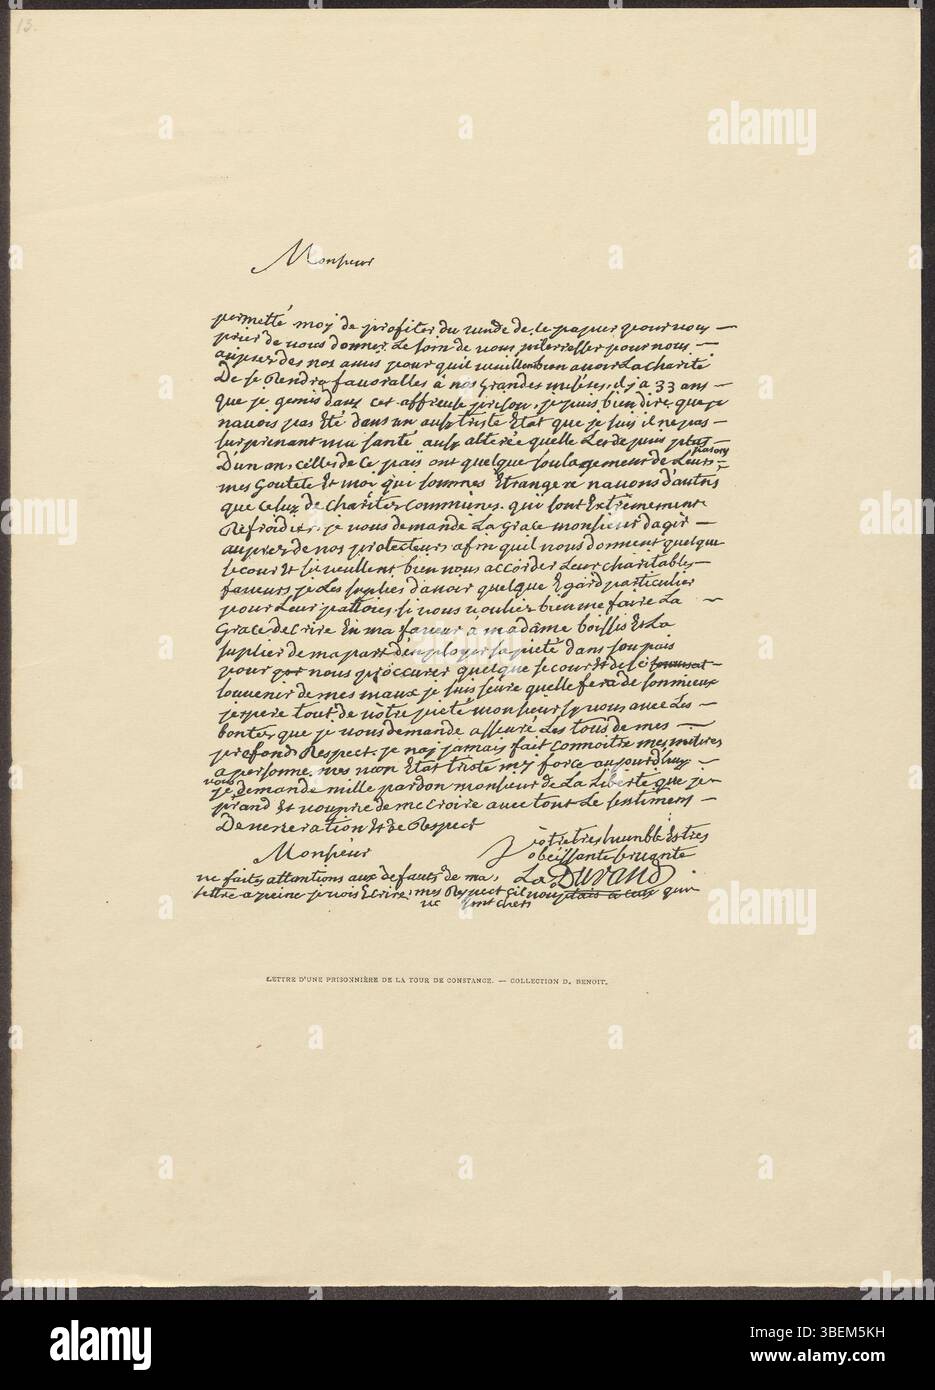 13.
Monsieur
permetté moy de profiter du vuide de ce papier pour vous
prier de vous donner Le soin de vous interresser pour nous
aupres des nos amis pour quil veuillent bien avoir La charité
De se Rendre favorables à nos Grandes miseres, il y a 33 ans
que je gemis dans cet affreuse prison, je puis bien dire que je
navois pas Eté dans un aussy triste Etat que je suis il ne pas
surprenant ma santé aussy altérée quelle Les depuis plus
D'un an, celles de ce païs ont quelque soulagement de Leurs
maisons
mes Goutete Et moi qui sommes Etrangere navons d'autres
que Celui de charités communes qui sont Extrêmement
Refroidies, je vous demande La Grace monsieur dagir
aupres de nos protecteurs afin quil nous donnent quelque
secour Et si veullent bien nous accorder Leur charitables
faveurs je Les suplies d'avoir quelque Egard particulier
pour Leur patloires si vous vouliez bien me faire La
Grace decrire En ma faveur à madame boissis Et La
suplier de ma part d'employer sa pieté dans son païs
pour nous proccurer quelque secour Et de se
souvenir de mes maux je suis seure quelle fera de son mieux
jespere tout de vôtre pieté monsieur sy vous avec Les
bontés que je vous demande assuré Les tous de mes
profond Respect je nay jamais fait connoitre mes miseres
a personne mes mon Etat triste my force aujourdhuy
vous
je demande mille pardon monsieur de La Liberté que je
prand Et vous prie de me croire avec tout Le sentiment
De veneration Et de Respect
Monsieur
vôtre tres humble Et tres
obeissante servante
La Durand
ne faites attantions aux defauts de ma
lettre a peine je vois Ecrire, mes Respect sil vous plait a ceux qui
ne sont chers
LETTRE D'UNE PRISONNIÈRE DE LA TOUR DE CONSTANCE. — COLLECTION D. BENOIT.
alamy
Image ID: 3BEM5KH
www.alamy.com